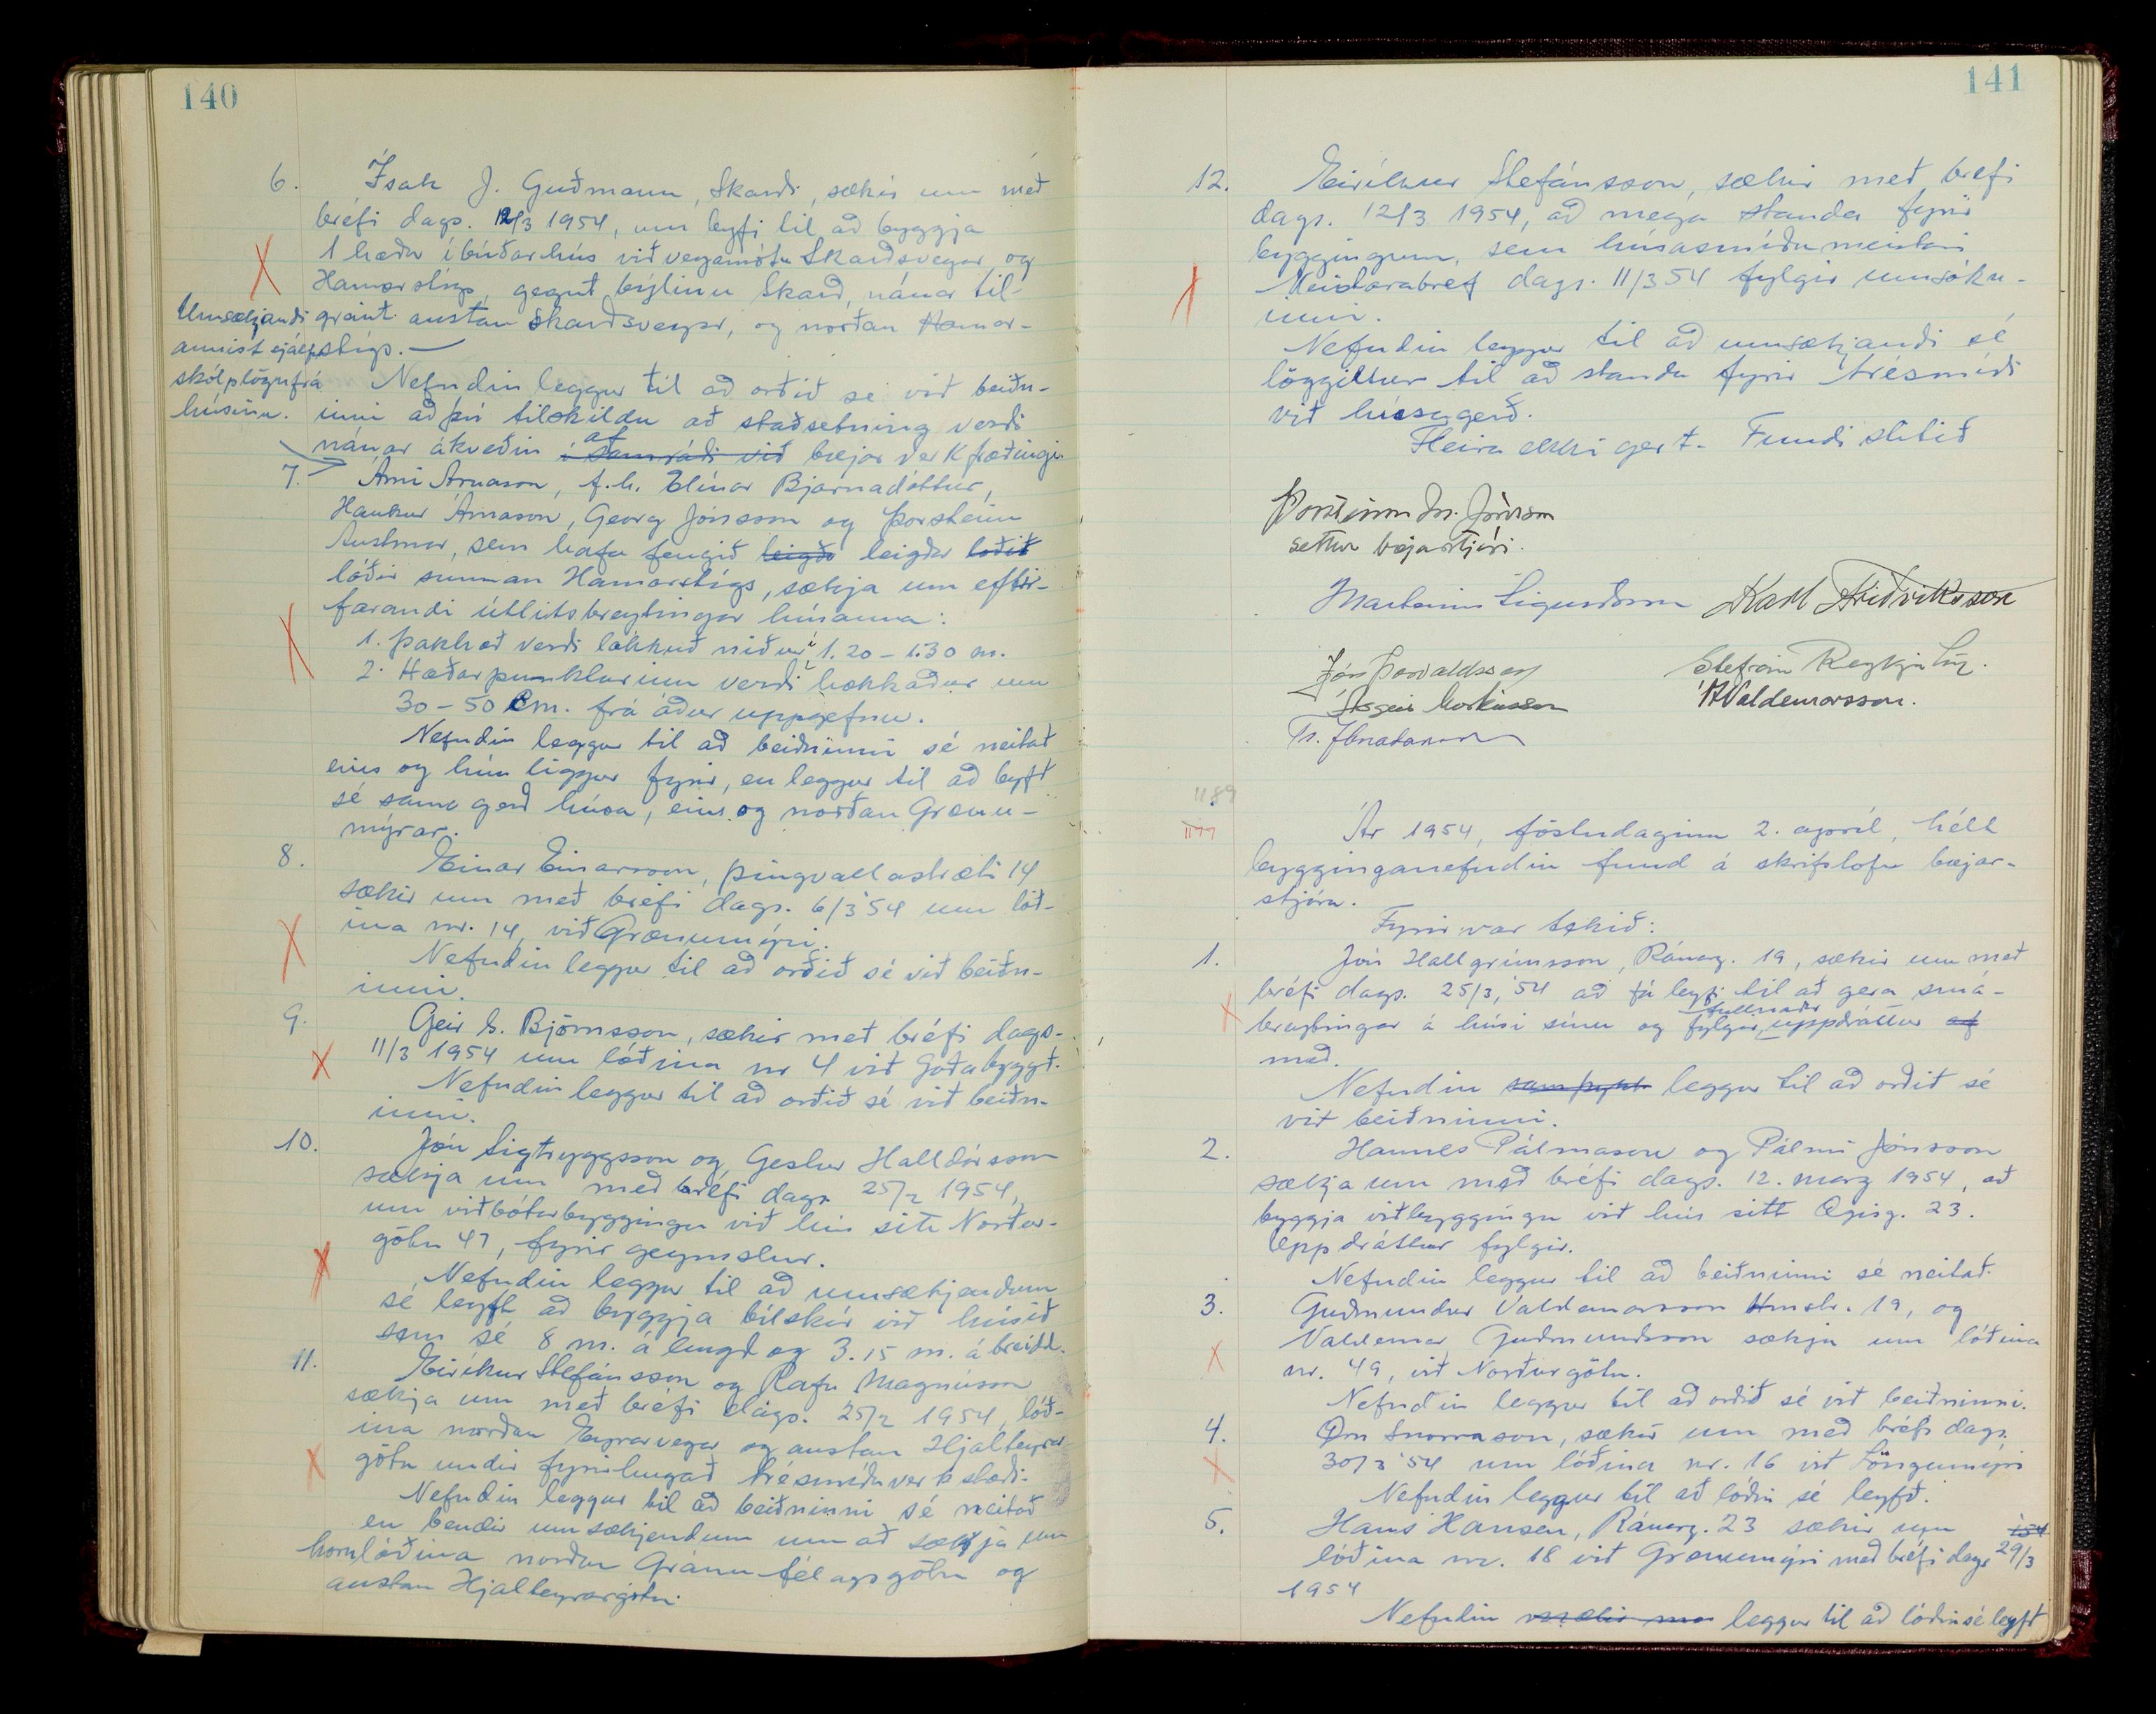 140
6. Ísak J. Guðmann, Skarði, sækir um með
bréfi dags. 12/3 1954, um leyfi til að byggja
1 hæða íbúðarhús við vegamótu Skarðsvegar og
Hamarstígs, gegnt býlinu Skarð, nánar til-
greint austan Skarðsvegar, og norðan Hamar-
stígs.
Umsækjandi
annist sjálfur
skólplögn frá
húsinu.
Nefndin leggur til að orðið sé við beiðn-
inni að því tilskildu að staðsetning verði
nánar ákveðin í samráði við af bæjarverkfræðingi
7. Árni Árnason, f.h. Elínar Bjarnadóttur,
Haukur Árnason, Georg Jónsson og Þorsteinn
Austmar, sem hafa fengið leigða leigðar lóðið
lóðir sunnan Hamarstígs, sækja um eftir-
farandi útlitsbreytingar húsanna:
1. Þakhæð verði lækkuð niður í 1.20 – 1.30 m.
2. Hæðarpunkturinn verði hækkaður um
30 – 50 cm. frá áður uppgefnu.
Nefndin leggur til að beiðninni sé neitað
eins og hún liggur fyrir, en leggur til að leyft
sé sama gerð húsa, eins og norðan Grænu-
mýrar.
8. Einar Einarsson, Þingvallastræti 14
sækir um með bréfi dags. 6/3 '54 um lóð-
ina nr. 14, við Grænumýri.
Nefndin leggur til að orðið sé við beiðn-
inni.
9. Geir S. Björnsson, sækir með bréfi dags.
11/3 1954 um lóðina nr 4 við Goðabyggð.
Nefndin leggur til að orðið sé við beiðn-
inni.
10. Jón Sigtryggsson og Gestur Halldórsson
sækja um með bréfi dags. 25/2 1954,
um viðbótarbyggingu við hús sitt Norður-
götu 47, fyrir geymslur.
Nefndin leggur til að umsækjendum
sé leyft að byggja bílskúr við húsið
sem sé 8 m. á lengd og 3.15 m. á breidd.
11. Eiríkur Stefánsson og Rafn Magnússon
sækja um með bréfi dags. 25/2 1954, lóð-
ina norðan Eyrarvegar og austan Hjalteyrar-
götu undir fyrirhugað trésmíðaverkstæði.
Nefndin leggur til að beiðninni sé neitað
en bendir umsækjendum um að sækja um
hornlóðina norðan Gránufélagsgötu og
austan Hjalteyrargötu.
141
12. Eiríkur Stefánsson, sækir með bréfi
dags. 12/3 1954, að mega standa fyrir
byggingum, sem húsasmíðameistari
Meistarabréf dags. 11/3 54 fylgir umsókn-
inni.
Nefndin leggur til að umsækjandi sé
löggiltur til að standa fyrir trésmíði
við húsagerð.
Fleira ekki gert. Fundi slitið
Þorsteinn M. Jónsson
settur bæjarstjóri.
Marteinn Sigurðsson Karl Friðriksson
Jón Þorvaldsson Stefán Reykjalín.
Ásgeir Markússon Á Valdemarsson.
Tr. Jónatansson
1189
1177
Ár 1954, föstudaginn 2. apríl, hélt
bygginganefndin fund á skrifstofu bæjar-
stjóra.
Fyrir var tekið:
1. Jón Hallgrímsson, Ránarg. 19, sækir um með
bréfi dags. 25/3, '54 að fá leyfi til að gera smá-
breytingar á húsi sínu og fylgir uppdráttur af
með.
Nefndin samþykk leggur til að orðið sé
við beiðninni.
2. Hannes Pálmason og Pálmi Jónsson
sækja um með bréfi dags. 12. marz 1954, að
byggja viðbyggingu við hús sitt Ægisg. 23.
Uppdráttur fylgir.
Nefndin leggur til að beiðninni sé neitað.
3. Guðmundur Valdemarsson Hmstr. 19, og
Valdemar Guðmundsson sækja um lóðina
nr. 49, við Norðurgötu.
Nefndin leggur til að orðið sé við beiðninni.
4. Örn Snorrason, sækir um með bréfi dags.
30/3 '54 um lóðina nr. 16 við Löngumýri
Nefndin leggur til að lóðin sé leyfð.
5. Hans Hansen, Ránarg. 23 sækir um
lóðina nr. 18 við Grænumýri með bréfi dags 29/3
1954
Nefndin leggur til að lóðin sé leyfð